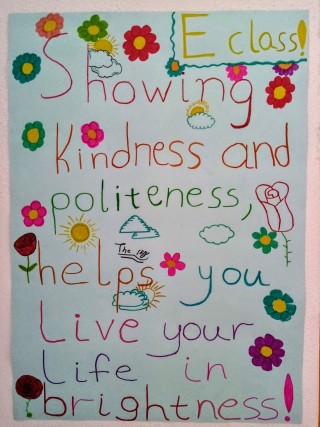 E class!
Showing
Kindness and
politeness,
helps you
Live your
Life in
brightness!